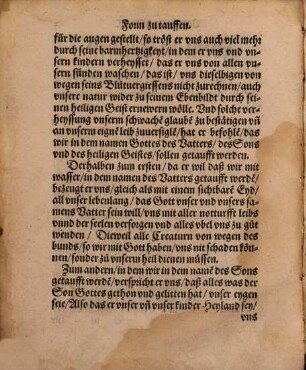 Form zu tauffen.
für die augen gestellt/ so tröst er vns auch viel mehr
durch seine barmhertzigkeyt/ in dem er vns vnd vn-
sern kindern verheysset/ das er vns von allen vn-
sern sünden waschen/ das ist/ vns dieselbigen von
wegen seins Blůtuergiessens nicht zurechnen/ auch
vnsere natur wider zu seinem Ebenbild durch sei-
nen heiligen Geist ernewern wölle. Vnd solche ver-
heyssung vnserm schwachē glaubē zu bestätigen vn̄
an vnserm eignē leib zuuersiglē/ hat er befohlē/ das
wir in dem namen Gottes des Vatters/ des Sons
vnd des heiligen Geistes/ sollen getaufft werden.
Derhalben zum ersten/ da er wil daß wir mit
wasser/ in dem namen des Vatters getaufft werdē/
bezeugt er vns/ gleich als mit einem sichtbarē Eyd/
all vnser lebenlang/ das Gott vnser vnd vnsers sa-
mens Vatter sein will/ vns mit aller notturfft leibs
vnnd der seelen versorgen vnd alles vbel vns zu gůt
wenden/ Dieweil alle Creaturn von wegen des
bunds/ so wir mit Gott haben/ vns nit schaden kön-
nen/ sonder zů vnserm heil dienen müssen.
Zum andern/ in dem wir in dem namē des Sons
getaufft werdē/ verspricht er vns/ daß alles was der
Son Gottes gethon vnd gelitten hat/ vnser eygen
seie/ Also das er vnser vn̄ vnser kinder Heyland sey/
vns